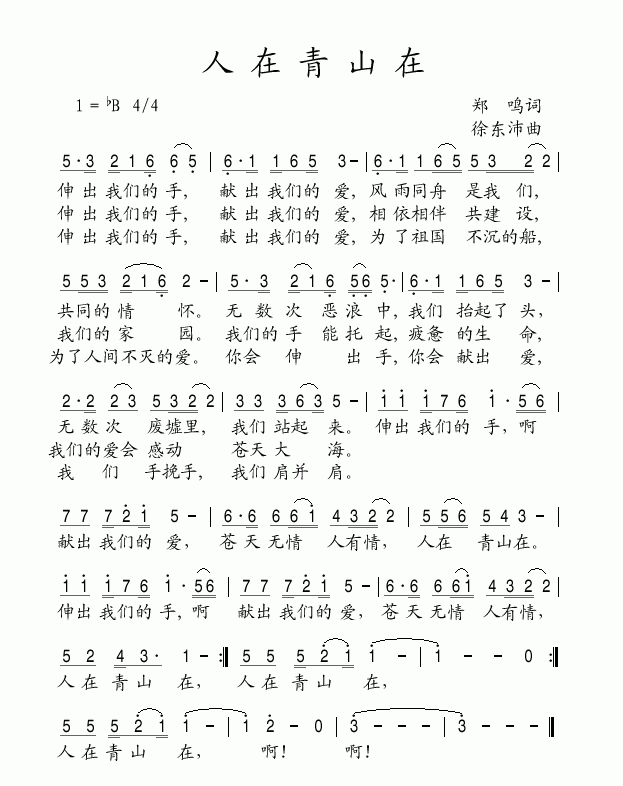 人在青山在
1 = ♭B 4/4 郑 鸣词
徐东沛曲
5·3 216 65 | 6·1 165 3- | 6·1 165 53 22 |
伸出我们的手, 献出我们的爱, 风雨同舟 是我们,
伸出我们的手, 献出我们的爱, 相依相伴 共建设,
伸出我们的手, 献出我们的爱, 为了祖国 不沉的船,
553 216 2- | 5·3 216 56 5· | 6·1 165 3- |
共同的情 怀。 无数次 恶浪中, 我们 抬起了头,
我们的家 园。 我们的手 能托起, 疲惫的生 命,
为了人间不灭的爱。 你会 伸 出手, 你会 献出爱,
2·2 23 5322 | 33 363 5- | 11 176 1·56 |
无数次 废墟里, 我们 站起来。 伸出我们的 手, 啊
我们的爱会 感动 苍天大 海。
我 们 手挽手, 我们肩并 肩。
77 721 5- | 6·6 661 4322 | 556 543- |
献出我们的爱, 苍天无情 人有情, 人在 青山在。
11 176 1·56 | 77 721 5- | 6·6 661 4322 |
伸出我们的手, 啊 献出我们的爱, 苍天无情 人有情,
52 43· 1- :| 55 521 1- | 1 - - 0 :|
人在 青山 在, 人在 青山 在,
55 521 1- - | 12 - 0 | 3 - - - | 3 - - - |
人在 青山 在, 啊! 啊!